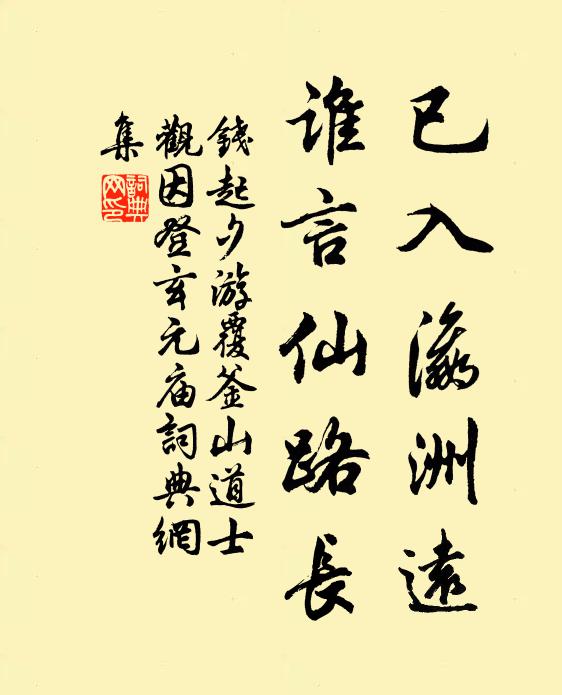 已入瀛洲遠
誰言仙路長
錢起夕游覆釜山道士
觀因登玄元庙詞典網
集
詞典
网印